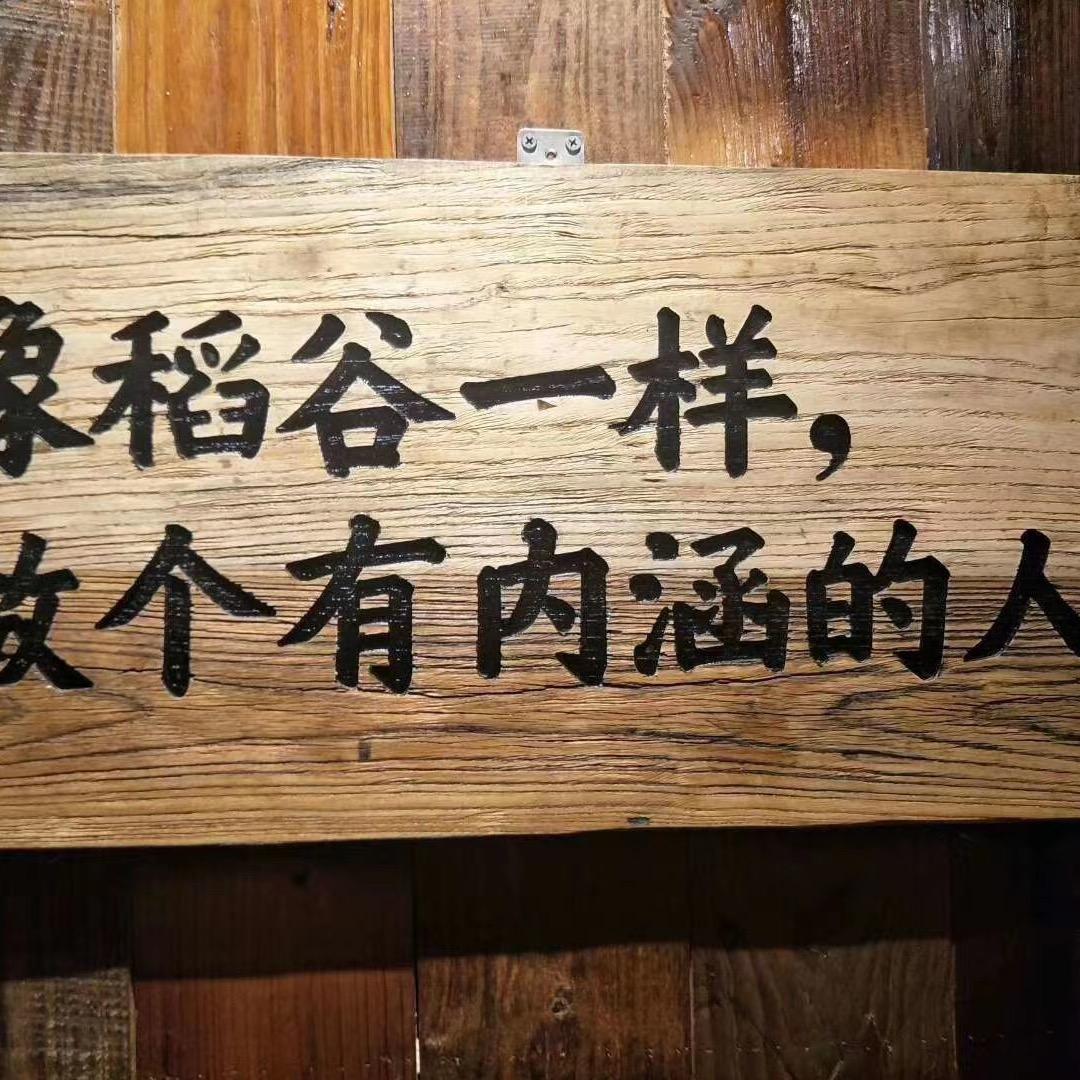 像稻谷一样，
做个有内涵的人